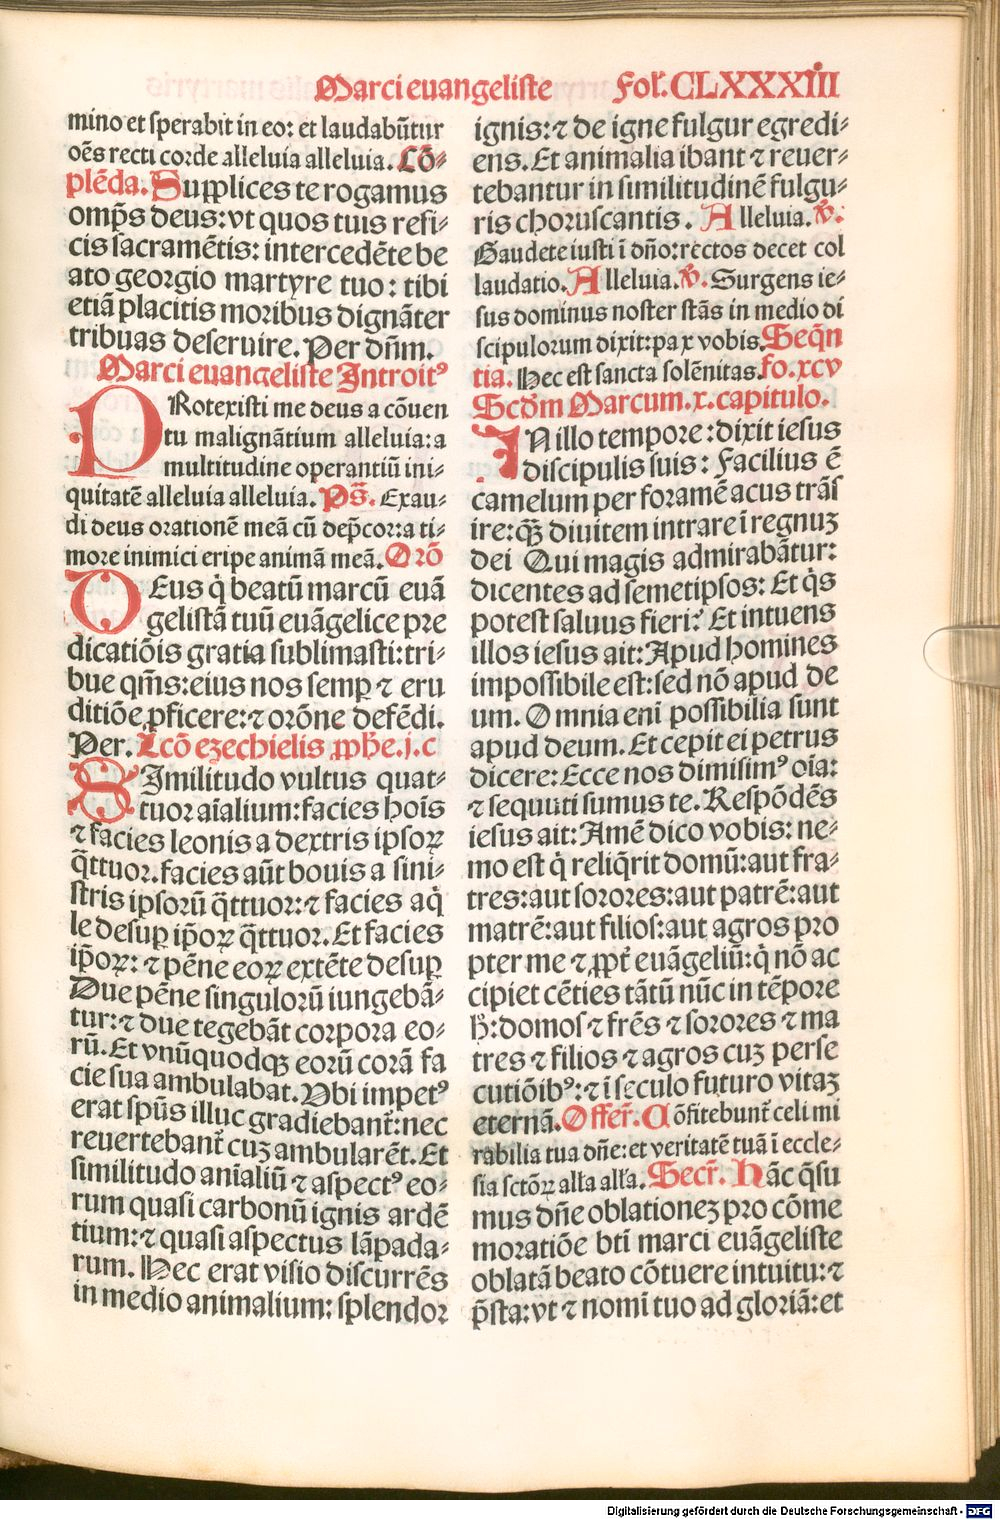 Marci euangeliste Fol. CLXXXIIII
mino et sperabit in eo: et laudabũtur
oẽs recti corde alleluia alleluia. Cõ-
plẽda. Supplices te rogamus
omp̃s deus: vt quos tuis refi-
cis sacramẽtis: intercedẽte be
ato georgio martyre tuo: tibi
etiã placitis moribus dignãter
tribuas deseruire. Per dñm.
Marci euangeliste Introitꝰ
PRotexisti me deus a cõuen
tu malignãtium alleluia: a
multitudine operantiũ ini-
quitatẽ alleluia alleluia. Ps̃. Exau-
di deus orationẽ meã cũ dep̃cor: a ti-
more inimici eripe animã meã. Orõ
DEus q̇ beatũ marcũ euã
gelistã tuũ euãgelice pre
dicatiõis gratia sublimasti: tri-
bue qm̃s: eius nos semꝑ ⁊ eru
ditiõe ꝓficere: ⁊ orõne defẽdi.
Per. Lcõ ezechielis ꝓphe. j. c
SImilitudo vultus quat-
tuor aĩalium: facies hoĩs
⁊ facies leonis a dextris ipsoꝝ
q̃ttuor. facies aũt bouis a sini-
stris ipsorũ q̃ttuor: ⁊ facies aq̇
le desuꝑ ip̃oꝝ q̃ttuor. Et facies
ip̃oꝝ: ⁊ pẽne eoꝝ extẽte desuꝑ
Due pẽne singulorũ iungebã-
tur: ⁊ due tegebãt corpora eo-
rũ. Et vnũquodqꝫ eorũ corã fa
cie sua ambulabat. Vbi impetꝰ
erat spũs illuc gradiebant̃: nec
reuertebant̃ cuꝫ ambularẽt. Et
similitudo anĩaliũ ⁊ aspectꝰ eo-
rum quasi carbonũ ignis ardẽ
tium: ⁊ quasi aspectus lãpada-
rum. Hec erat visio discurrẽs
in medio animalium: splendor
ignis: ⁊ de igne fulgur egredi-
ens. Et animalia ibant ⁊ reuer-
tebantur in similitudinẽ fulgu-
ris choruscantis. Alleluia. ℣.
Gaudete iusti ĩ dño: rectos decet col
laudatio. Alleluia. ℣. Surgens ie-
sus dominus noster stãs in medio di
scipulorum dixit: pax vobis. Seq̃n
tia. Hec est sancta solẽnitas. fo. xcv
Scd̃m Marcum. x. capitulo.
IN illo tempore: dixit iesus
discipulis suis: Facilius ẽ
camelum per foramẽ acus trãs
ire: qꝫ̃ diuitem intrare ĩ regnuꝫ
dei Qui magis admirabãtur:
dicentes ad semetipsos: Et q̇s
potest saluus fieri? Et intuens
illos iesus ait: Apud homines
impossibile est: sed nõ apud de
um. Omnia enĩ possibilia sunt
apud deum. Et cepit ei petrus
dicere: Ecce nos dimisimꝰ oĩa:
⁊ sequuti sumus te. Respõdẽs
iesus ait: Amẽ dico vobis: ne-
mo est q̇ reliq̇rit domũ: aut fra-
tres: aut sorores: aut patrẽ: aut
matrẽ: aut filios: aut agros pro
pter me ⁊ ꝓpt̃ euãgeliũ: q̇ nõ ac
cipiet cẽties tãtũ nũc in tẽpore
h̃: domos ⁊ fr̃es ⁊ sorores ⁊ ma
tres ⁊ filios ⁊ agros cuꝫ perse
cutiõibꝰ: ⁊ ĩ seculo futuro vitaꝫ
eternã. Offer̃. Cõfitebunt̃ celi mi
rabilia tua dñe: et veritatẽ tuã ĩ eccle-
sia sctõꝝ alła alła. Secr̃. Hãc q̃su
mus dñe oblationeꝫ pro cõme
moratiõe bti marci euãgeliste
oblatã beato cõtuere intuitu: ⁊
p̃sta: vt ⁊ nomĩ tuo ad gloriã: et
Digitalisierung gefördert durch die Deutsche Forschungsgemeinschaft - DFG